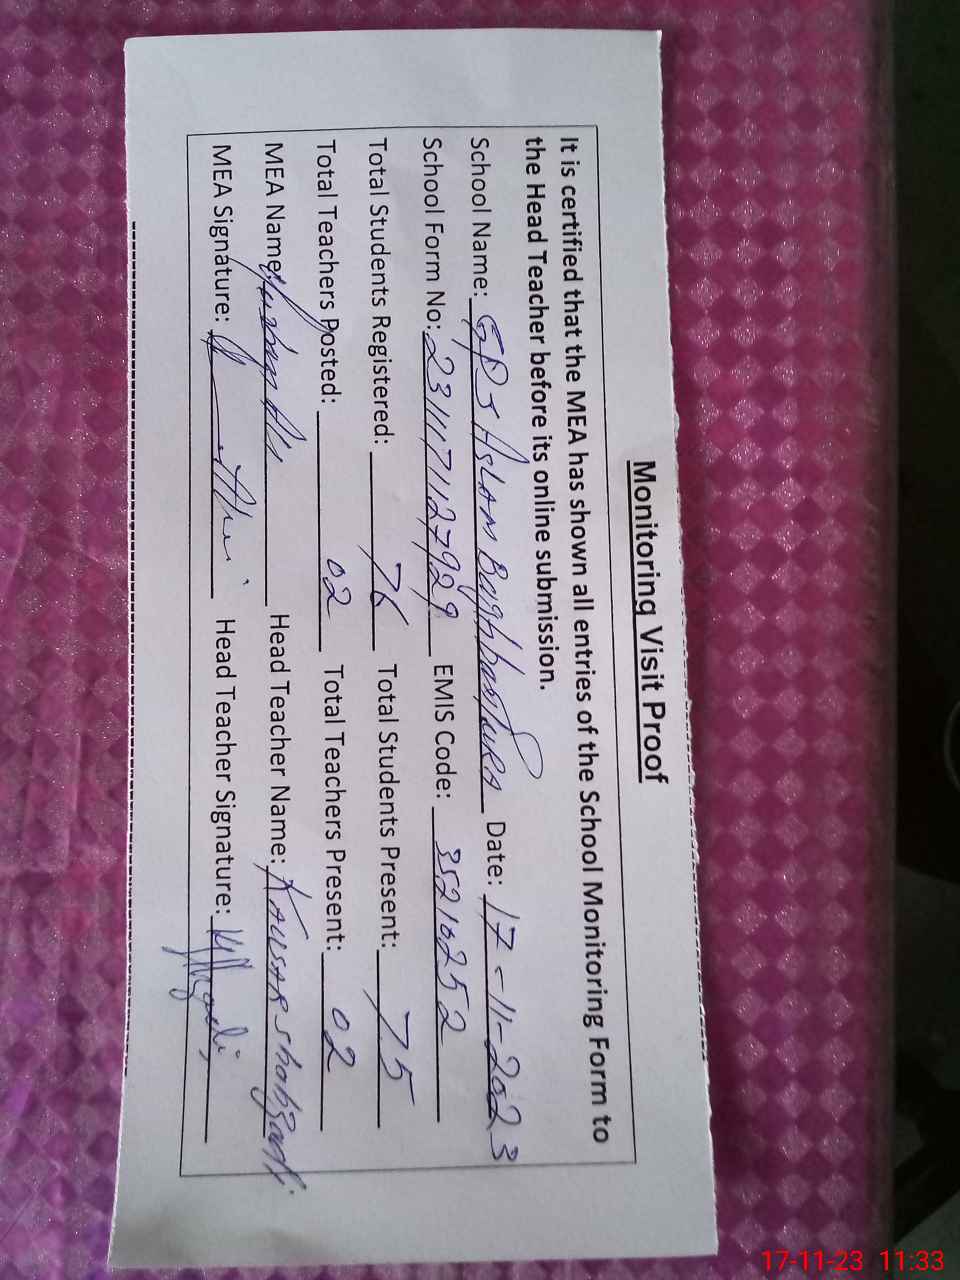 Monitoring Visit Proof
It is certified that the MEA has shown all entries of the School Monitoring Form to
the Head Teacher before its online submission.
School Name: GPS Aslam Date: 17-11-2023
School Form No: 2311171127929 EMIS Code: 35210252
Total Students Registered: 76 Total Students Present: 75
Total Teachers Posted: 02 Total Teachers Present: 02
MEA Name: Ali Head Teacher Name: Kousar Shahzadi
MEA Signature: Head Teacher Signature:
17-11-23 11:33